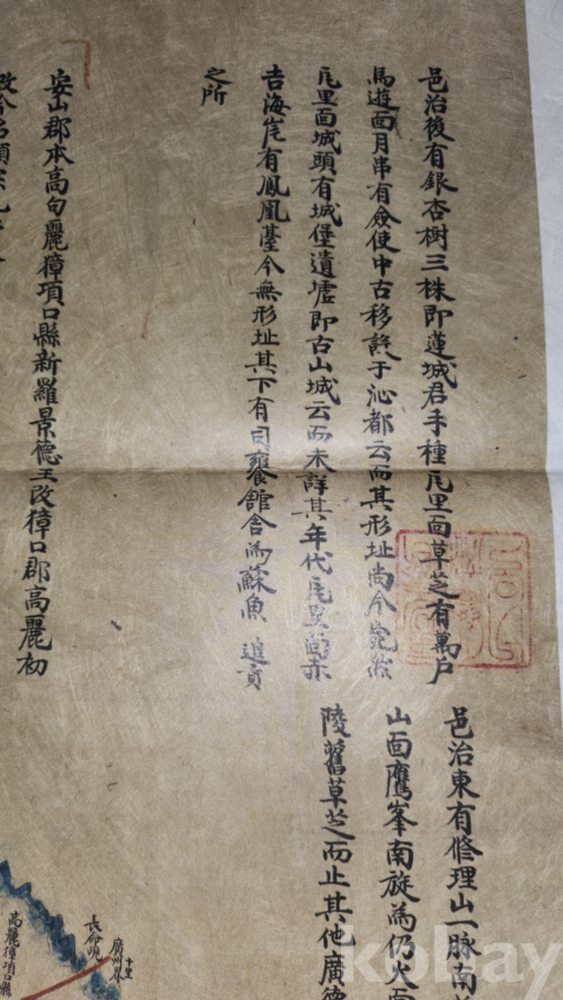 邑治後有銀杏樹三株即蓮城君手種瓦里面草芝有萬戶
馬遊面月串有僉使中古移設于沁都云而其形址尚今宛然
瓦里面城頭有城堡遺墟即古山城云而未詳其年代瓦里面赤
吉海崖有鳳凰臺今無形址其下有司饔館舍為蘇魚 進貢
之所
安山郡本高句麗獐項口縣新羅景德王改獐口郡高麗初
改今名顯宗九年
邑治東有修理山一脉南
山面鷹峯南旋為仍火面
陵舊草芝而止其他廣德
廣州界
十里
長命峴
高麗獐項口縣
kobay